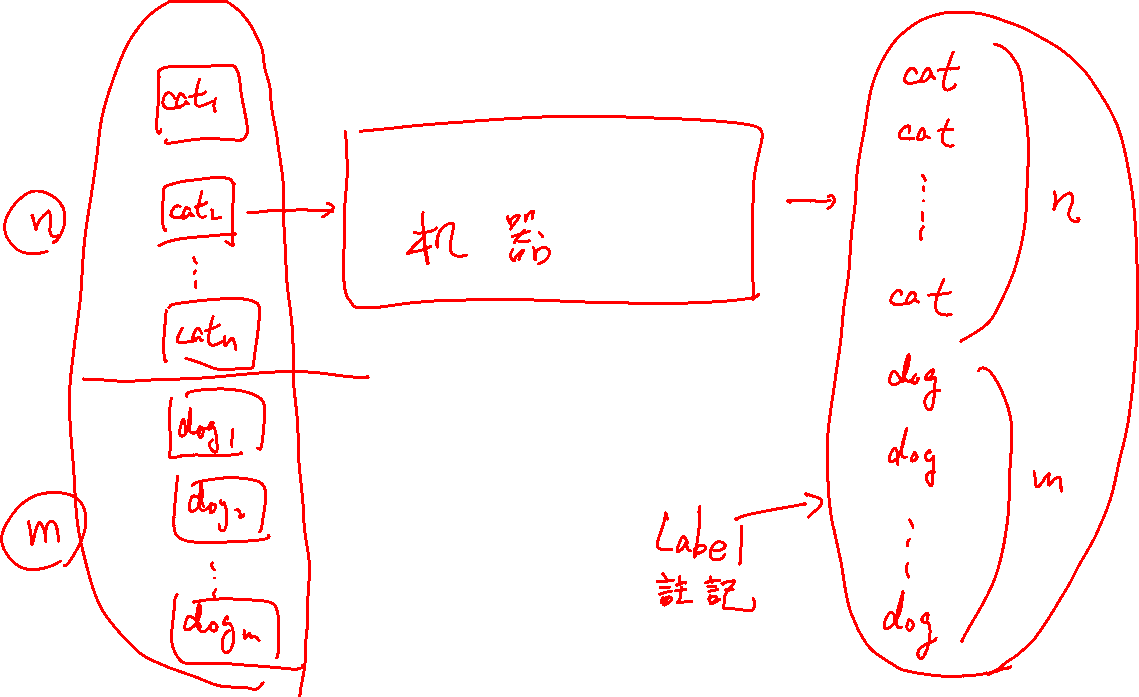 n
cat₁
cat₂
⋮
catₙ
m
dog₁
dog₂
⋮
dogₘ
机器
cat
cat
⋮
cat
n
dog
dog
⋮
dog
m
Label
註記